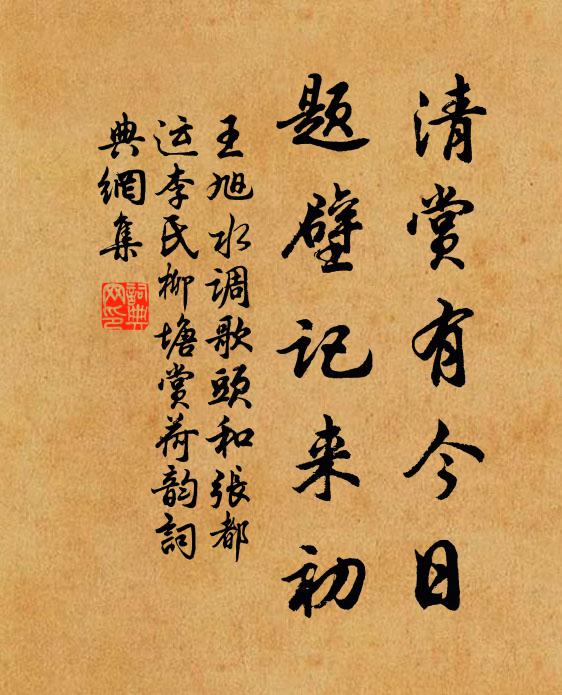 清赏有今日
题壁记来初
王旭水调歌头和張都
运李民柳塘赏荷韵词
典網集
詞典網印